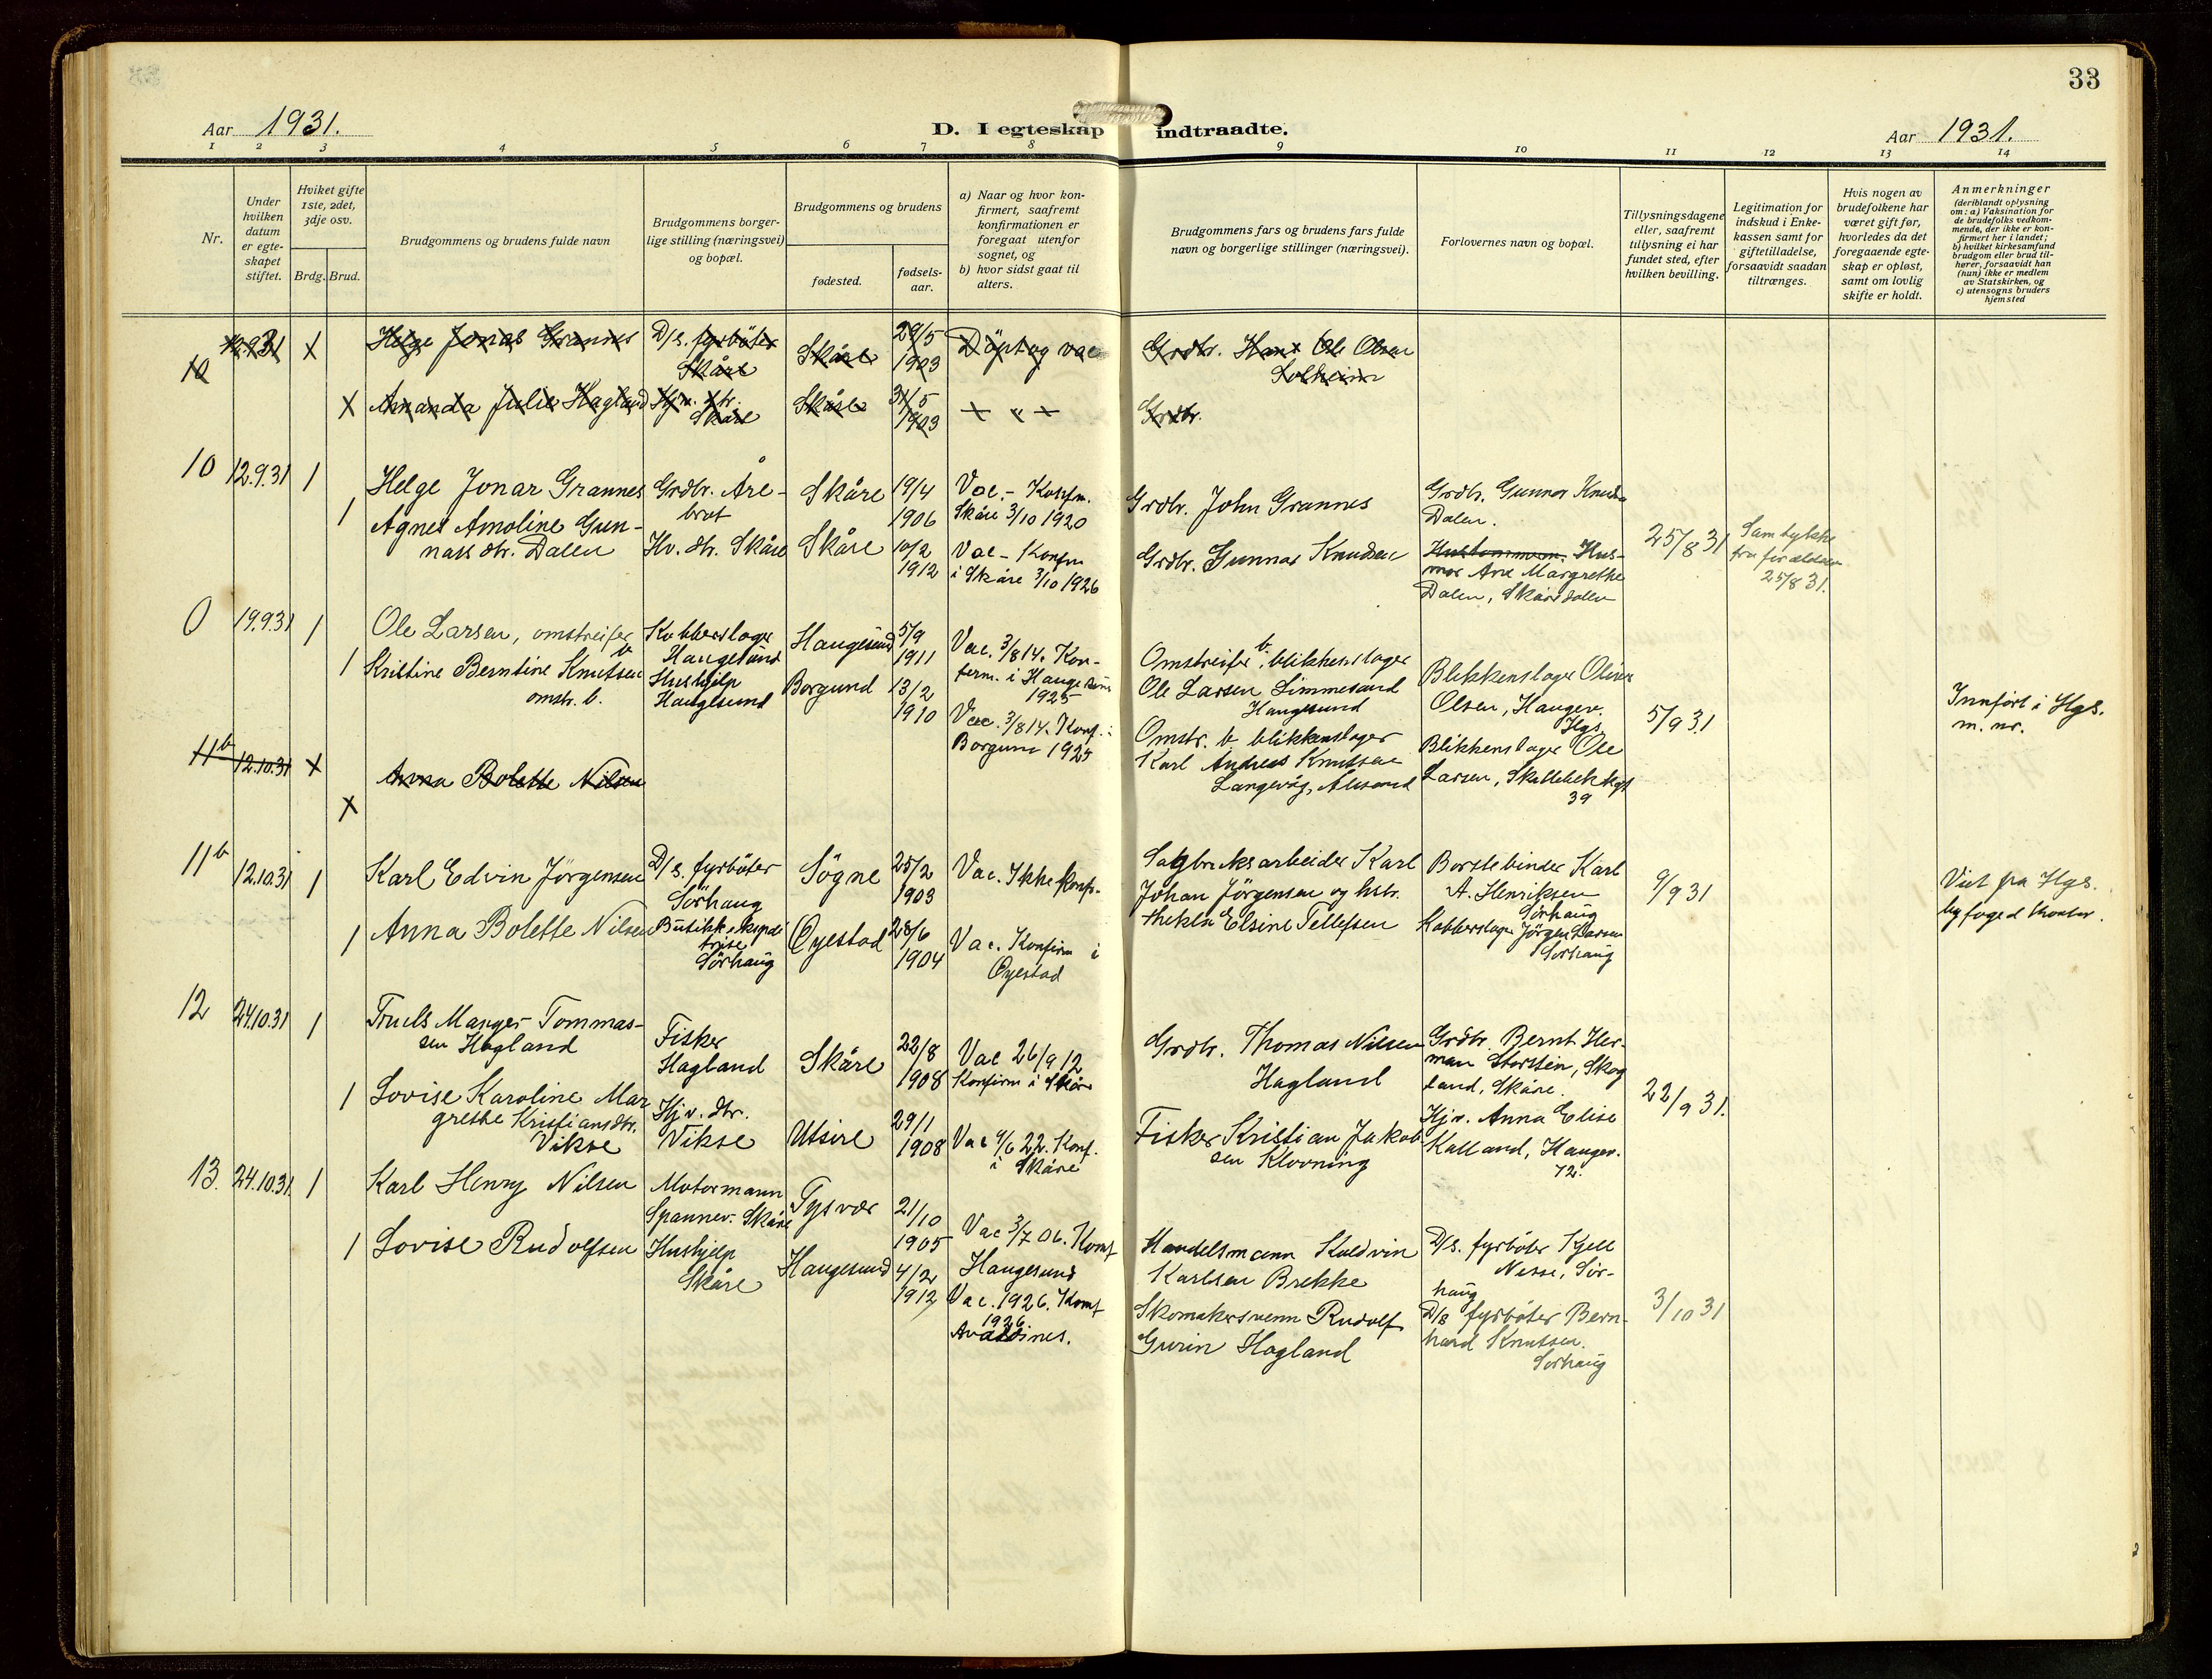 33
Aar 1931.
D. I egteskap indtraadte.
Aar 1931.
1 2 3 4 5 6 7 8 9 10 11 12 13 14
Nr.
Under hvilken datum er egteskapet stiftet.
Hviket gifte 1ste, 2det, 3dje osv.
Brdg. Brud.
Brudgommens og brudens fulde navn
Brudgommens borgerlige stilling (næringsvei) og bopæl.
Brudgommens og brudens
fødested.
fødselsaar.
a) Naar og hvor konfirmert, saafremt konfirmationen er foregaat utenfor sognet, og
b) hvor sidst gaat til alters.
Brudgommens fars og brudens fars fulde navn og borgerlige stillinger (næringsvei).
Forlovernes navn og bopæl.
Tillysningsdagene eller, saafremt tillysning ei har fundet sted, efter hvilken bevilling.
Legitimation for indskud i Enkekassen samt for giftetilladelse, forsaavidt saadan tiltrænges.
Hvis nogen av brudefolkene har været gift før, hvorledes da det foregaaende egteskap er opløst, samt om lovlig skifte er holdt.
Anmerkninger (deriblandt oplysning om: a) Vaksination for de brudefolks vedkommende, der ikke er konfirmert her i landet; b) hvilket kirkesamfund brudgom eller brud tilhører, forsaavidt han (hun) ikke er medlem av Statskirken, og c) utensogns bruders hjemsted
10 X Helge Jonas Grannes D/s. fyrbøter Skåre Skåre 29/5 1903 Døpt og vac Grdbr. Hans Ole Olsen Solheim
X Amanda Julie Hagland Skåre Skåre 31/5 1903 — " — Grdbr.
10 12.9.31 1 Helge Jonar Grannes Grdbr. Årebrot Skåre 19/4 1906 Vac. - Konfm. Skåre 3/10 1920 Grdbr. John Grannes Grdbr. Gunnar Knuds. Dalen.
1 Agnes Amoline Gunnars dtr. Dalen Hv. dtr. Skåre Skåre 10/2 1912 Vac - Konfm i Skåre 3/10 1926 Grdbr. Gunnar Knudsen Husmor Ane Margrethe Dalen, Skåredalen 25/8 31 Samtykke fra forældren 25/8 31.
0 19.9.31 1 Ole Larsen, omstreifer b Kobberslager Haugesund Haugesund 5/9 1911 Vac. 3/8 14. Konferm. i Haugesund 1925 Omstreifer b. blikkenslager Ole Larsen Simmesund Haugesund Blikkenslager Oliver Olsen, Haugev. Hgs. 5/9 31 Innført i Hgs. m. nr.
1 Kristine Berntine Knutsen omstr. b. Hushjelp Haugesund Borgund 13/2 1910 Vac. 3/8 14. Konf. i Borgund 1925 Omstr. b blikkenslager Karl Andreas Knutsen Langevåg, Ålesund Blikkenslager Ole Larsen, Skallebekkgt 39
11b 12.10.31 X
X Anna Bolette Nilsen
11b 12.10.31 1 Karl Edvin Jørgensen D/s. fyrbøter Sørhaug Søgne 25/2 1903 Vac. Ikke konf. Sagbruksarbeider Karl Johan Jørgensen og hstr. Thekla Elsine Tellefsen Børstebinder Karl A. Henriksen Sørhaug 9/9 31 Viet på Hgs. byfoged kontor.
1 Anna Bolette Nilsen Butikkekspeditrise Sørhaug Øyestad 28/6 1904 Vac. Konfirm i Øyestad Kobberslager Jørgen Larsen Sørhaug
12 24.10.31 1 Truels Manger Tommassen Hagland Fisker Hagland Skåre 22/8 1908 Vac 26/9 12 Konfirm i Skåre Grdbr. Thomas Nilsen Hagland Grdbr. Bernt Herman Storstein, Skogland, Skåre. 22/9 31.
1 Lovise Karoline Margrethe Kristiansdtr. Vikse Hjv. dtr. Vikse Utsire 29/1 1908 Vac 9/6 22. Konf. i Skåre Fisker Kristian Jakobsen Klovning Hjv. Anna Elise Kalland, Haugev. 72.
13. 24.10.31. 1 Karl Henry Nilsen Motormann Spannev. Skåre Tysvær 21/10 1905 Vac 3/7 06. Konf Haugesund Handelsmann Koldvin Karlsen Brekke D/s. fyrbøter Kjell Nesse, Sørhaug 3/10 31
1 Lovise Rudolfsen Hushjelp Skåre Haugesund 4/2 1912 Vac. 1926. Konf 1926 Avaldsnes. Skomakersvenn Rudolf Gurin Hagland D/s fyrbøter Bernhard Knutsen. Sørhaug